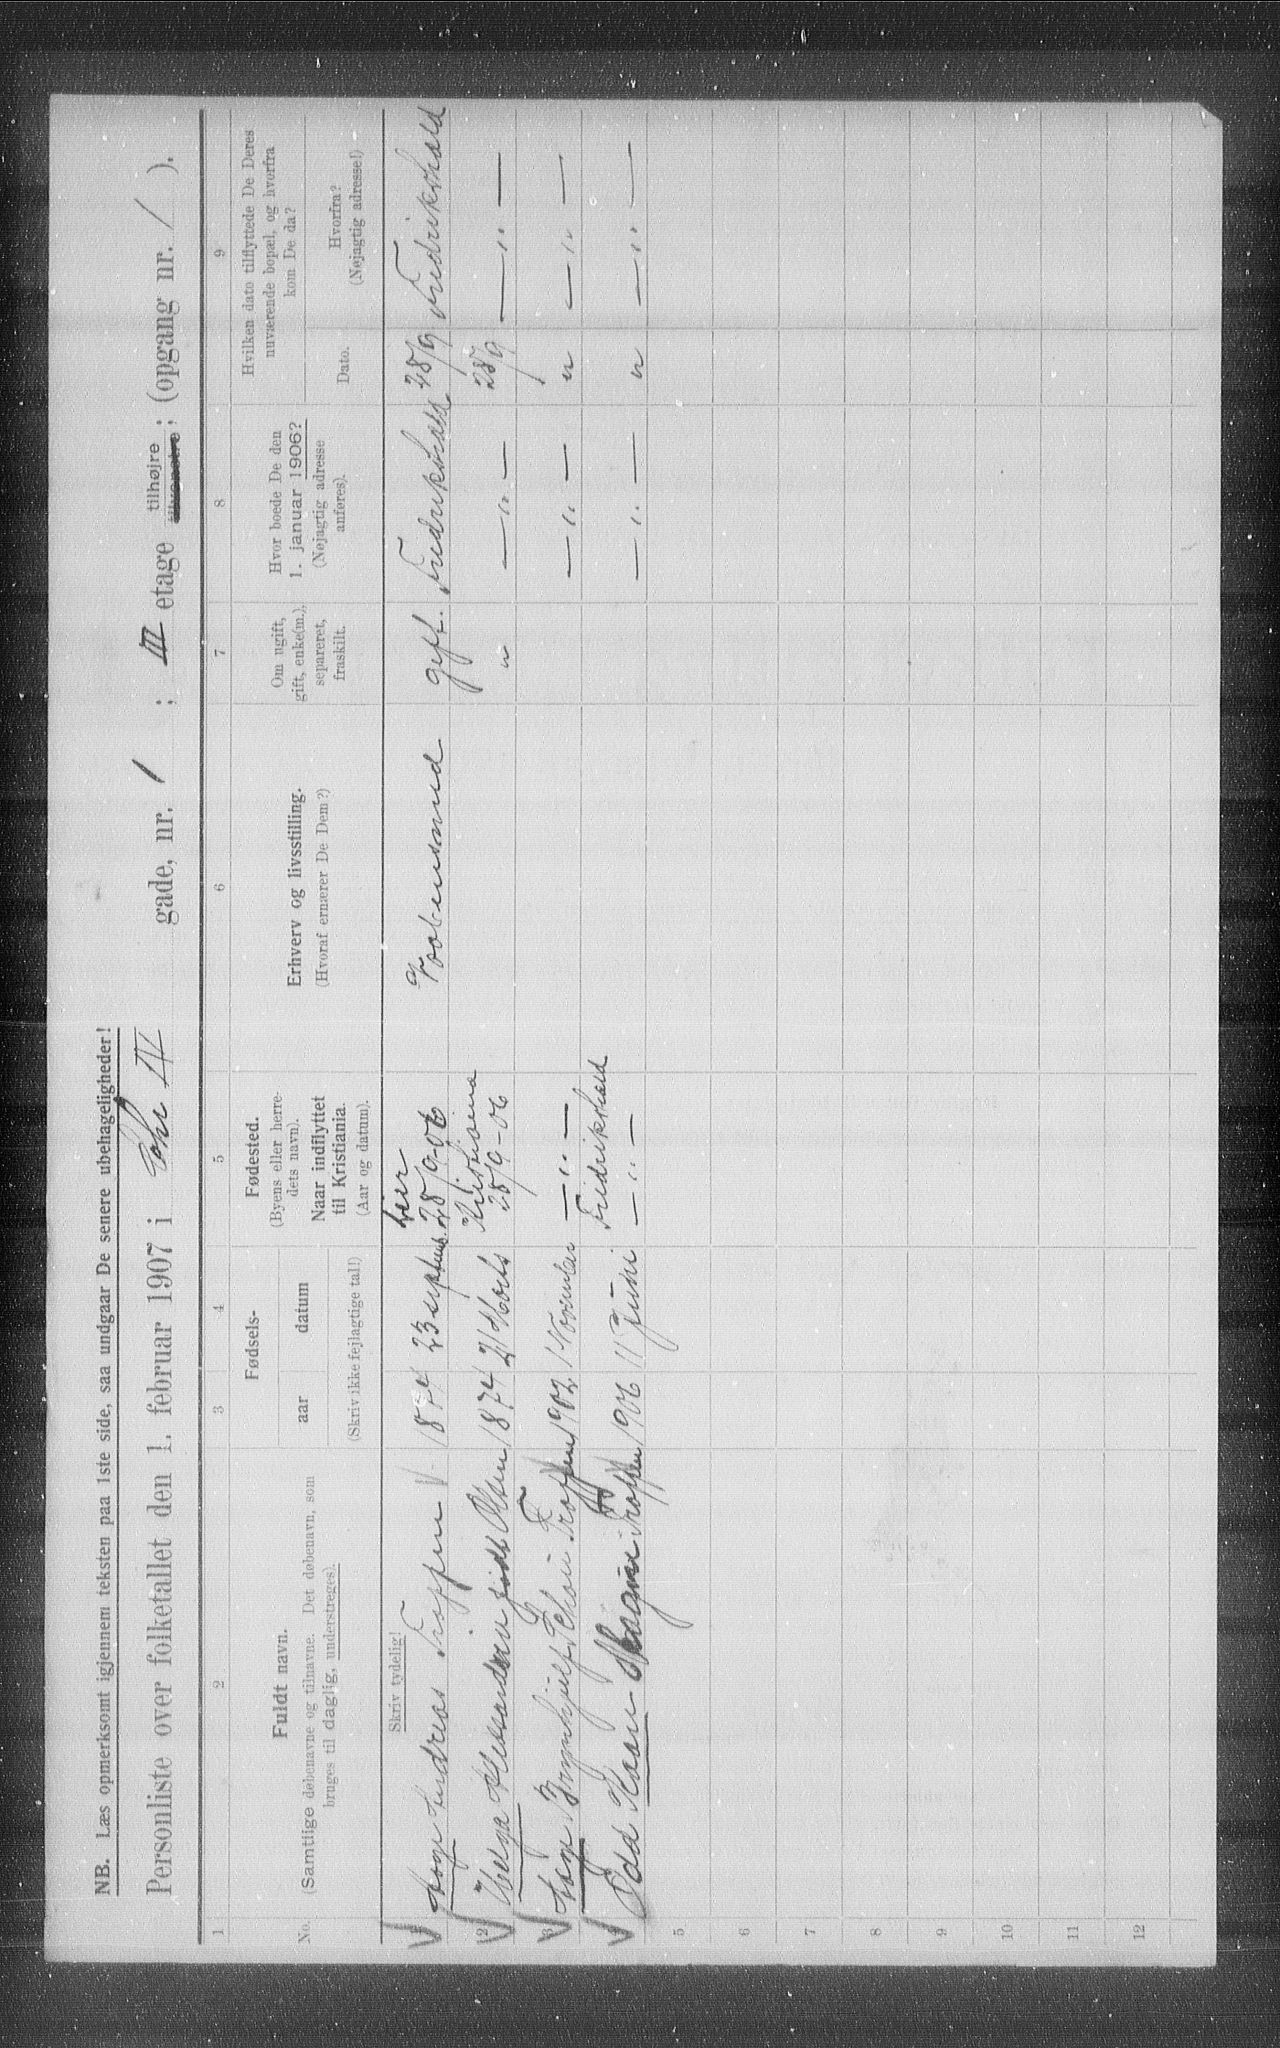 NB. Læs opmerksomt igjennem teksten paa 1ste side, saa undgaar De senere ubehageligheder!
Personliste over folketallet den 1. februar 1907 i Chr IV gade, nr. 1 ; III etage tilhøjre tilvenstre; (opgang nr. / ).
1 2 3 4 5 6 7 8 9
No.
Fuldt navn.
(Samtlige døbenavne og tilnavne. Det døbenavn, som
bruges til daglig, understreges).
Fødsels-
aar datum
(Skriv ikke fejlagtige tal!)
Fødested.
(Byens eller herre-
dets navn).
Naar indflyttet
til Kristiania.
(Aar og datum).
Erhverv og livsstilling.
(Hvoraf ernærer De Dem?)
Om ugift,
gift, enke(m.),
separeret,
fraskilt.
Hvor boede De den
1. januar 1906?
(Nøjagtig adresse
anføres).
Hvilken dato tilflyttede De Deres
nuværende bopæl, og hvorfra
kom De da?
Dato.
Hvorfra?
(Nøjagtig adresse!)
Skriv tydelig!
Aage Andreas Troppen 1874 23 septemb. Lier 28/9-06 gift. Fredrikshald 28/9 Fredrikshald
2 Helga Alexandra født Olsen 1874 21 Marts Kristiania 28/9-06 " — " — 28/9 — " —
3 Aage Brynhjulf Schou Troppen 1902 1 November — " — — " — " — " —
Odd Kaare Magne Troppen 1906 11 Juni Fredrikshald — " — — " — " — " —
5
6
7
8
9
10
11
12